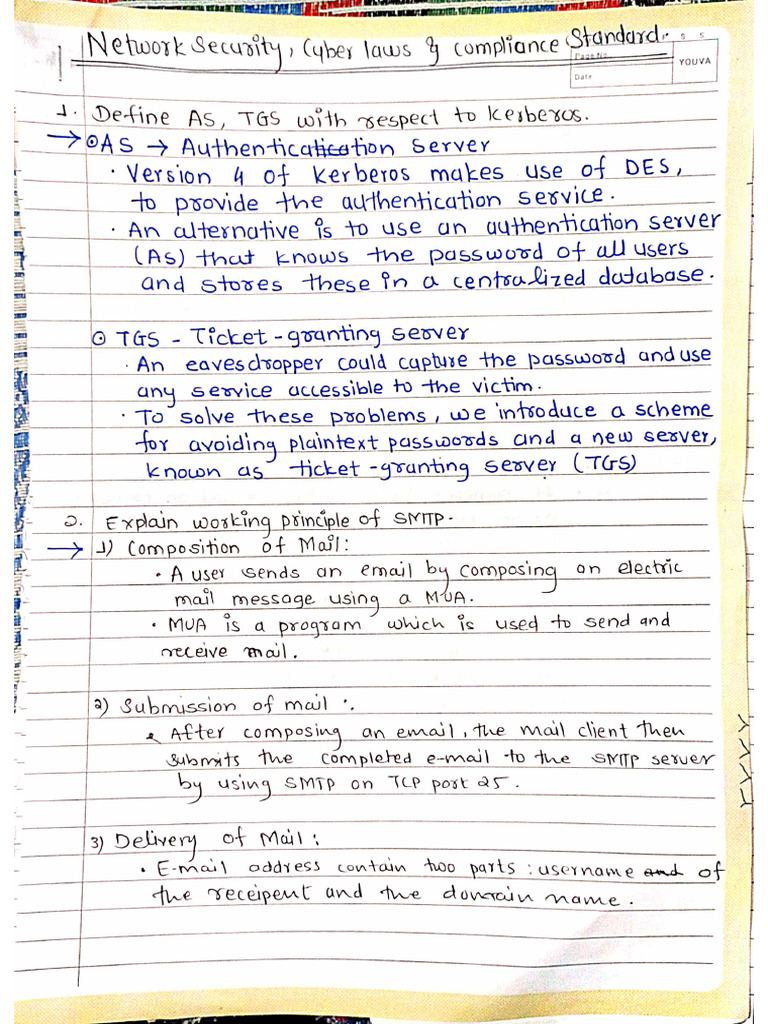 Network Security, Cyber laws & compliance Standard.
Page No.
Date
YOUVA
1. Define AS, TGS with respect to Kerberos.
→ ⊙ AS → Authentication Server
· Version 4 of Kerberos makes use of DES,
to provide the authentication service.
· An alternative is to use an authentication server
(As) that knows the password of all users
and stores these in a centralized database.
⊙ TGS - Ticket-granting server
· An eavesdropper could capture the password and use
any service accessible to the victim.
· To solve these problems, we introduce a scheme
for avoiding plaintext passwords and a new server,
known as ticket-granting server (TGS)
2. Explain working principle of SMTP.
→ 1) Composition of Mail:
· A user sends an email by composing an electric
mail message using a MUA.
· MUA is a program which is used to send and
receive mail.
2) Submission of mail :.
· After composing an email, the mail client then
submits the completed e-mail to the SMTP server
by using SMTP on TCP port 25.
3) Delivery of Mail:
· E-mail address contain two parts : username and of
the receipent and the domain name.